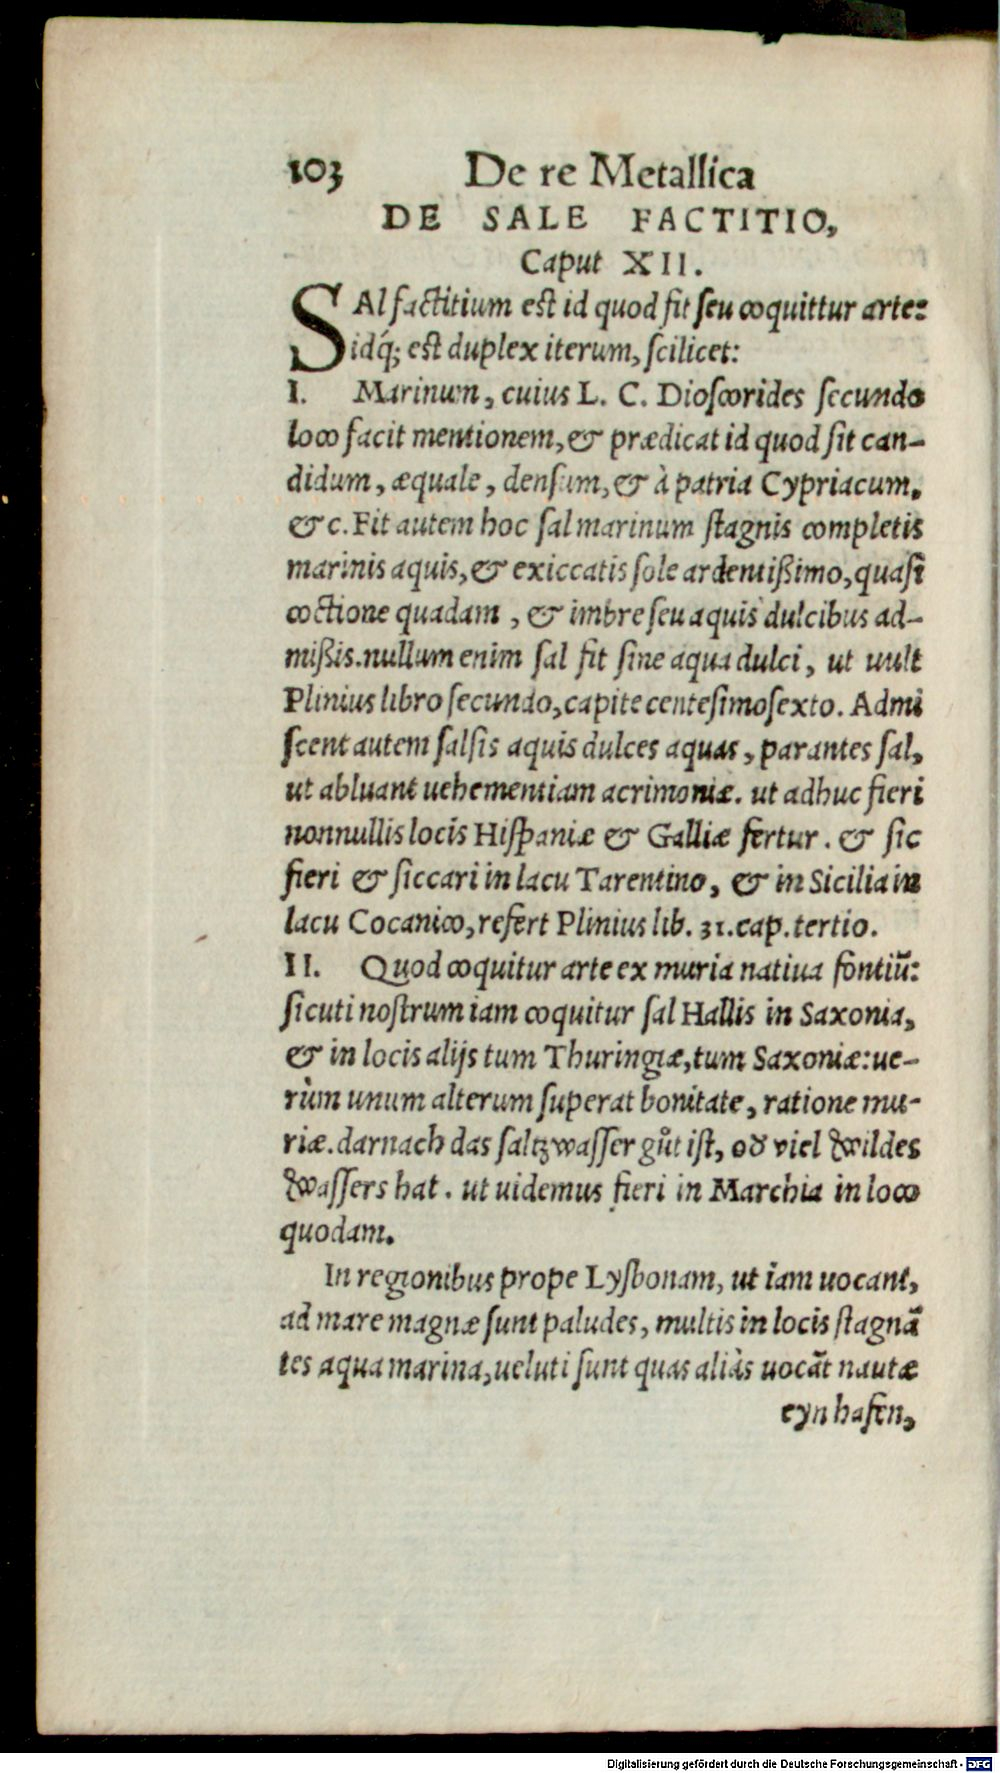 103 De re Metallica
DE SALE FACTITIO,
Caput XII.
SAl factitium est id quod fit seu coquittur arte:
idq́; est duplex iterum, scilicet:
I. Marinum, cuius L. C. Dioscorides secundo
loco facit mentionem, & prædicat id quod sit can-
didum, æquale, densum, & à patria Cypriacum.
&c. Fit autem hoc sal marinum stagnis completis
marinis aquis, & exiccatis sole ardentißimo, quasi
coctione quadam, & imbre seu aquis dulcibus ad-
mißis. nullum enim sal fit sine aqua dulci, ut uult
Plinius libro secundo, capite centesimosexto. Admi
scent autem salsis aquis dulces aquas, parantes sal,
ut abluant uehementiam acrimoniæ. ut adhuc fieri
nonnullis locis Hispaniæ & Galliæ fertur. & sic
fieri & siccari in lacu Tarentino, & in Sicilia in
lacu Cocanico, refert Plinius lib. 31. cap. tertio.
II. Quod coquitur arte ex muria natiua fontiũ:
sicuti nostrum iam coquitur sal Hallis in Saxonia,
& in locis alijs tum Thuringiæ, tum Saxoniæ: ue-
rùm unum alterum superat bonitate, ratione mu-
riæ. darnach das saltzwasser gůt ist, od viel wildes
wassers hat. ut uidemus fieri in Marchia in loco
quodam.
In regionibus prope Lysbonam, ut iam uocant,
ad mare magnæ sunt paludes, multis in locis stagnã
tes aqua marina, ueluti sunt quas aliàs uocãt nautæ
eyn hafen,
Digitalisierung gefördert durch die Deutsche Forschungsgemeinschaft - DFG